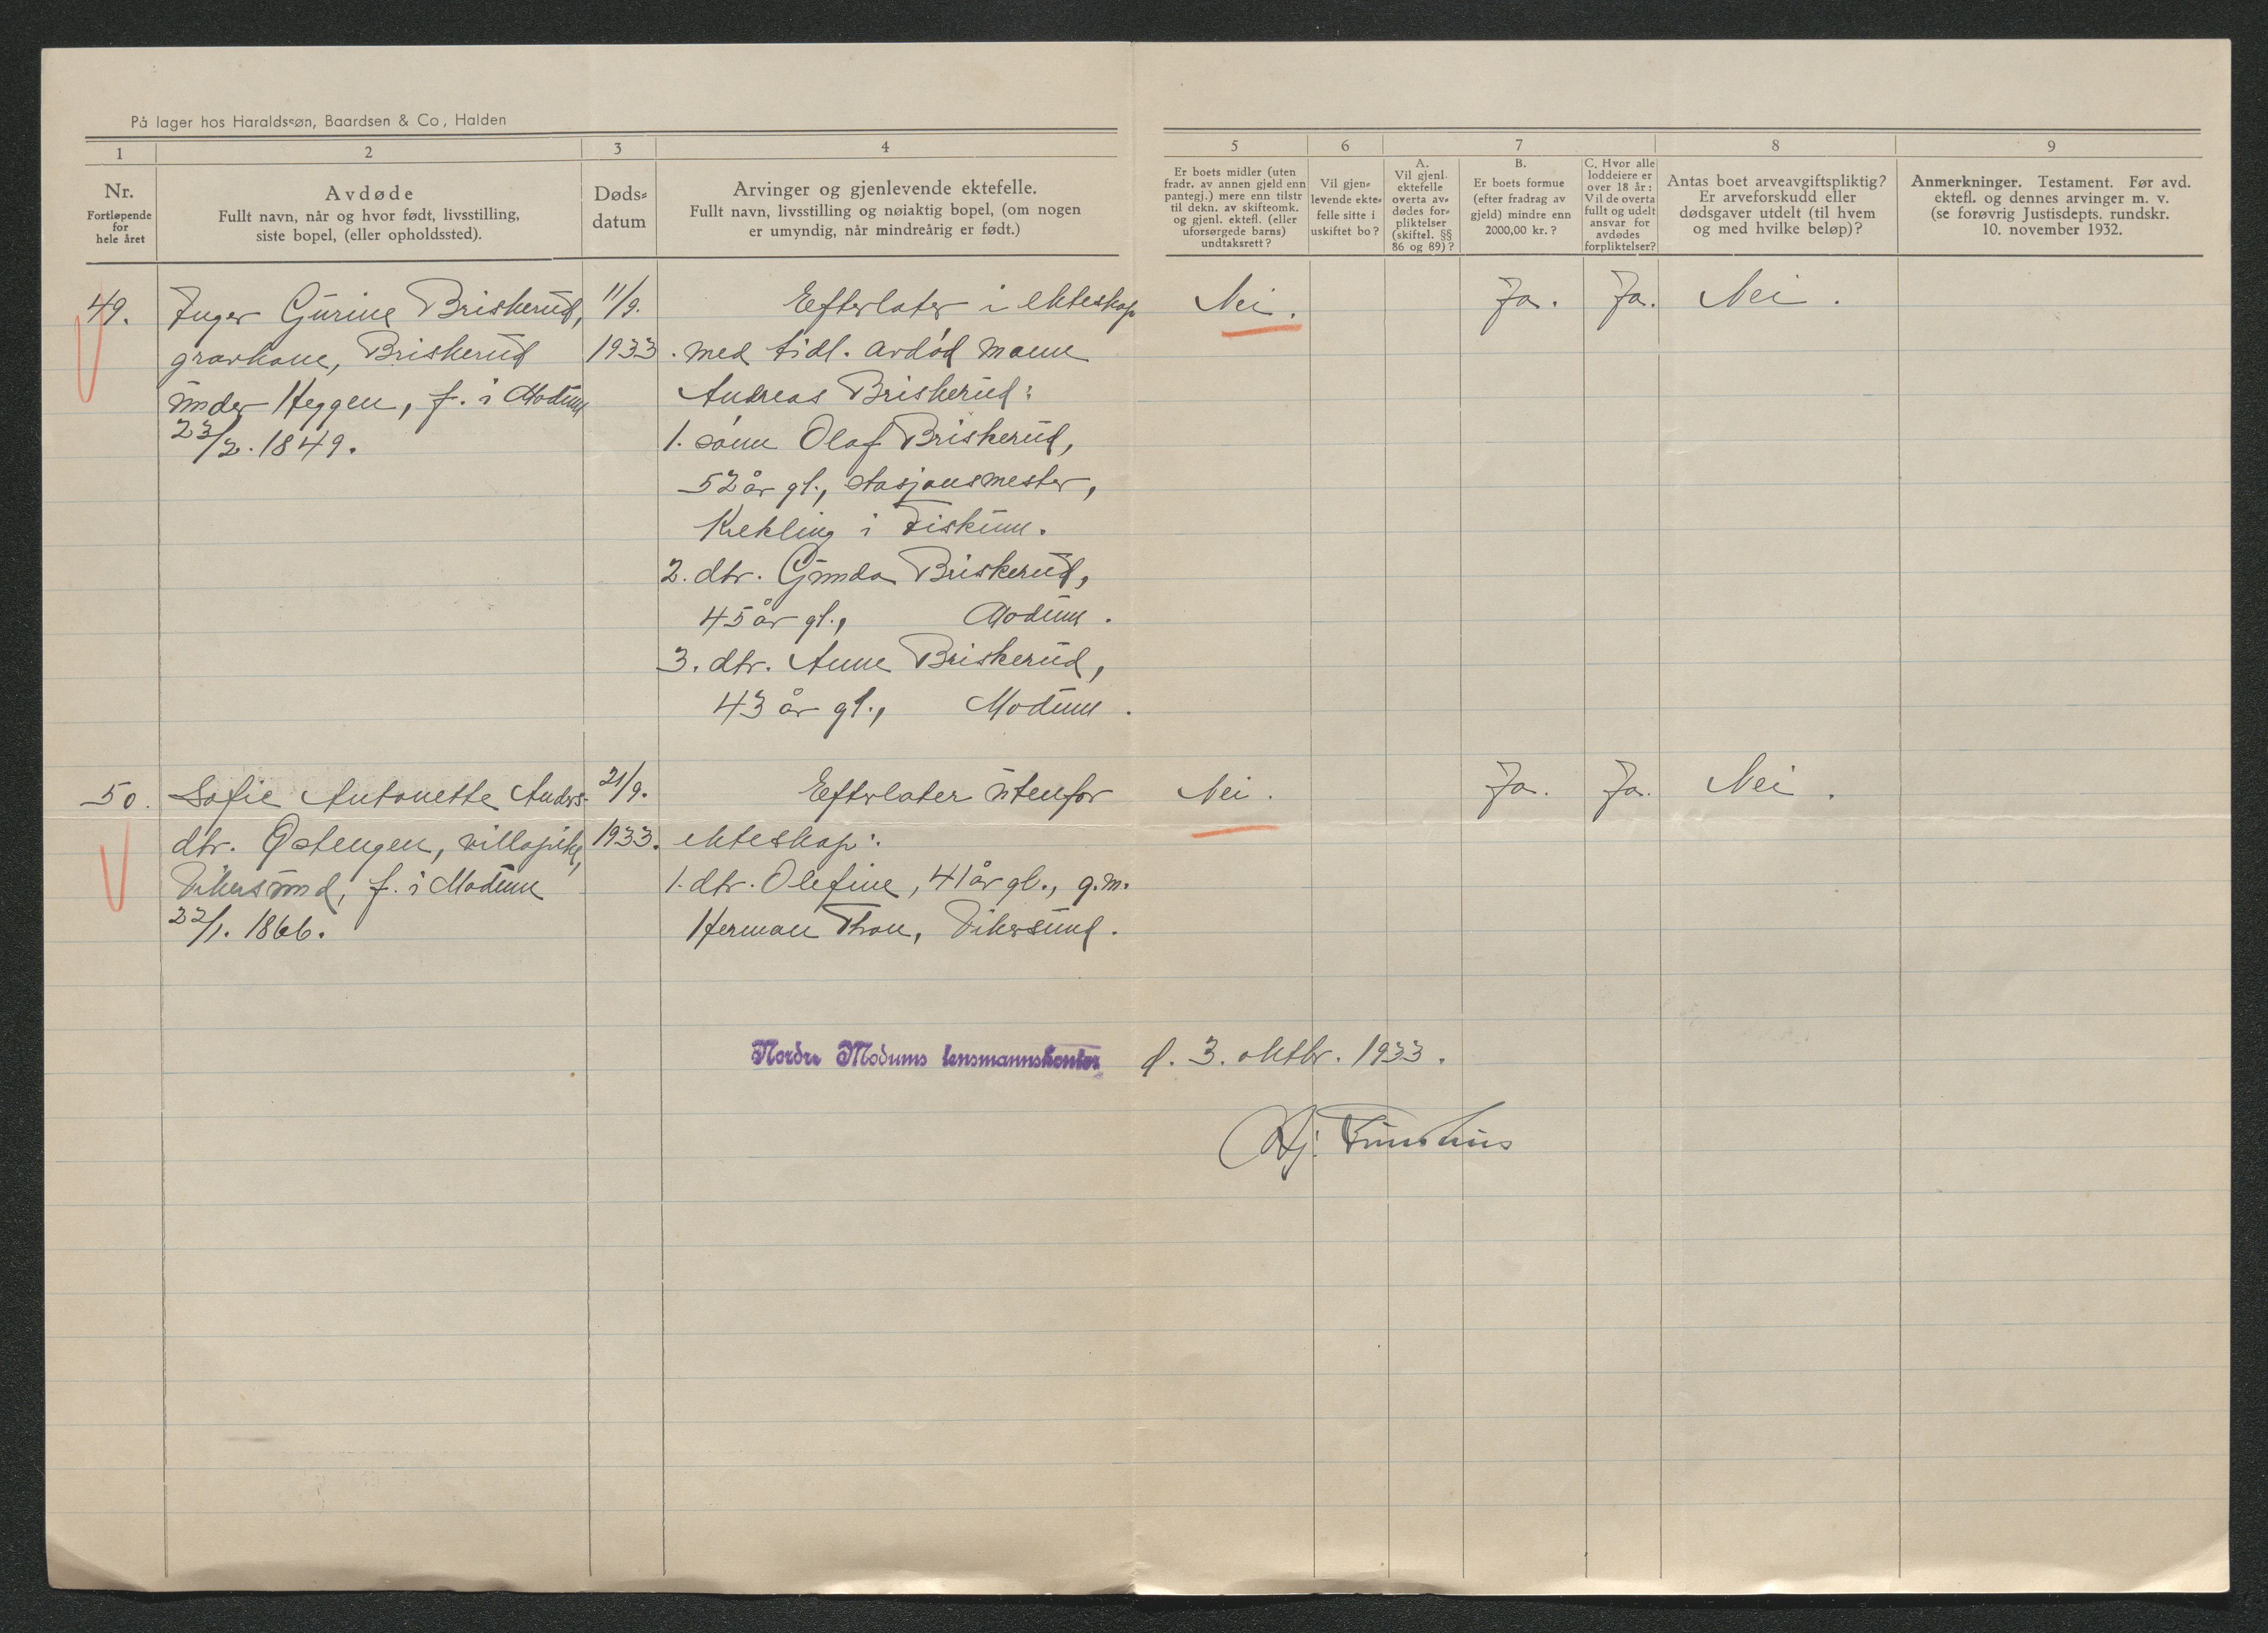 På lager hos Haraldssøn, Baardsen & Co, Halden
1
2
3
4
5
6
7
8
9
Nr.
Fortløpende
for
hele året
Avdøde
Fullt navn, når og hvor født, livsstilling,
siste bopel, (eller opholdssted).
Døds-
datum
Arvinger og gjenlevende ektefelle.
Fullt navn, livsstilling og nøiaktig bopel, (om nogen
er umyndig, når mindreårig er født.)
Er boets midler (uten
fradr. av annen gjeld enn
pantegj.) mere enn tilstr
til dekn. av skifteomk.
og gjenl. ektefl. (eller
uforsørgede barns)
undtaksrett?
Vil gjen-
levende ekte-
felle sitte i
uskiftet bo?
A.
Vil gjenl.
ektefelle
overta av-
dødes for-
pliktelser
(skiftel. §§
86 og 89)?
B.
Er boets formue
(efter fradrag av
gjeld) mindre enn
2000,00 kr.?
C. Hvor alle
loddeiere er
over 18 år:
Vil de overta
fullt og udelt
ansvar for
avdødes
forpliktelser?
Antas boet arveavgiftspliktig?
Er arveforskudd eller
dødsgaver utdelt (til hvem
og med hvilke beløp)?
Anmerkninger. Testament. Før avd.
ektefl. og dennes arvinger m. v.
(se forøvrig Justisdepts. rundskr.
10. november 1932.
49.
Inger Gurine Briskerud,
gravkone, Briskerud
under Heggen, f. i Modum
23/2. 1849.
11/9.
1933.
Efterlater i ekteskap
med tidl. avdød mann
Andreas Briskerud:
1. sønn Olaf Briskerud,
52 år gl., stasjonsmester,
Krekling i Fiskum.
2. dtr. Gunda Briskerud,
45 år gl., Modum.
3. dtr. Anne Briskerud,
43 år gl., Modum.
Nei.
Ja.
Ja.
Nei.
50.
Sofie Antonette Anders-
dtr. Østengen, villapike,
Vikersund, f. i Modum
22/1. 1866.
21/9.
1933.
Efterlater utenfor
ekteskap:
1. dtr. Olefine, 41 år gl., g.m.
Herman Thon, Vikersund.
Nei.
Ja.
Ja.
Nei.
Nordre Modums lensmannskontor d. 3. oktbr. 1933.